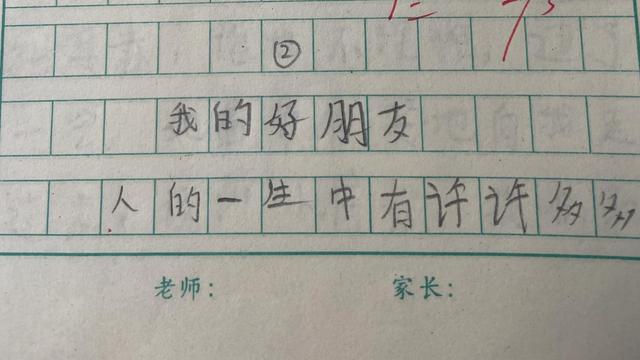 ②
我的好朋友
人的一生中有许许多多
老师： 家长：